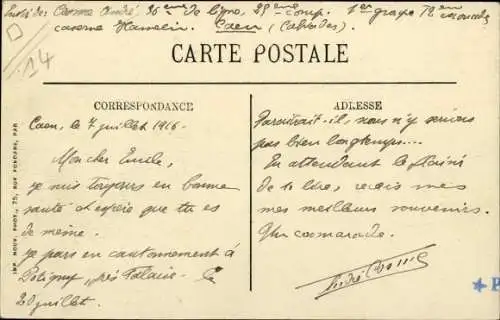 de ligne, 25ème comp. 1er groupe
caserne Hamelin. Caen (Calvados).
14
CARTE POSTALE
CORRESPONDANCE
Caen, le 7 juillet 1916.
Mon cher Emile,
je suis toujours en bonne
santé et espère que tu es
de même.
je pars en cantonnement à
Potigny, près Falaise. Le
20 juillet.
ADRESSE
Paraîtrait-il, nous n'y serions
pas bien longtemps....
En attendant le plaisir
de te lire, reçois mes
mes meilleurs souvenirs.
Un camarade.
IMP. NOUV. PHOT., 35, RUE PAR